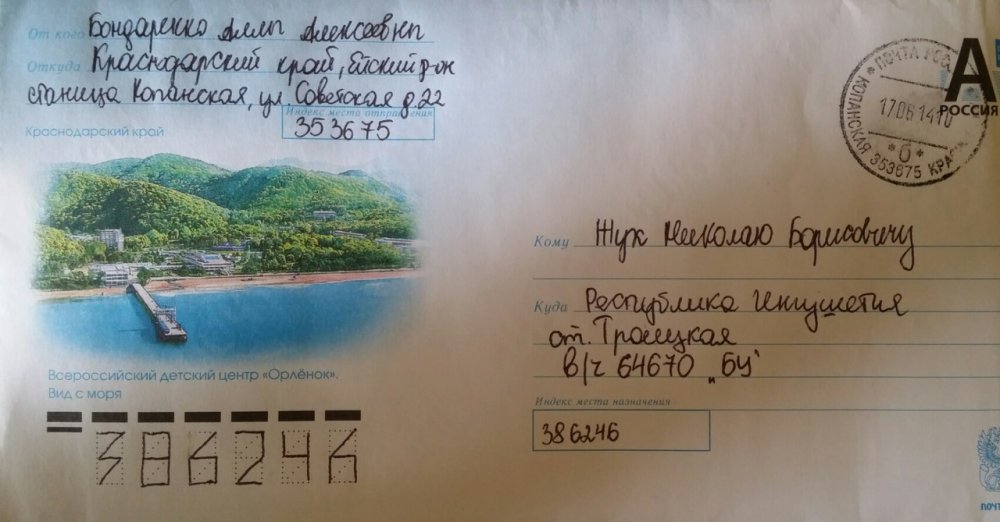 От кого Бондаренко Аллы Алексеевны
Откуда Краснодарский край, Ейский р-он
станица Копанская, ул. Советская д.22
Индекс места отправления
353675
Краснодарский край
Всероссийский детский центр «Орлёнок».
Вид с моря
386246
ПОЧТА РОС
КОПАНСКАЯ 353675 КРАС
17.06.14 10
*б*
А
РОССИЯ
Кому Жук Николаю Борисовичу
Куда Республика Ингушетия
ст. Троицкая
в/ч 64670 „БУ"
Индекс места назначения
386246
ПОЧТ